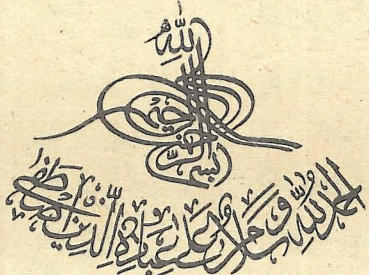 بسم الله الرحمن الرحيم
الحمد لله وسلام على عباده الذين اصطفى